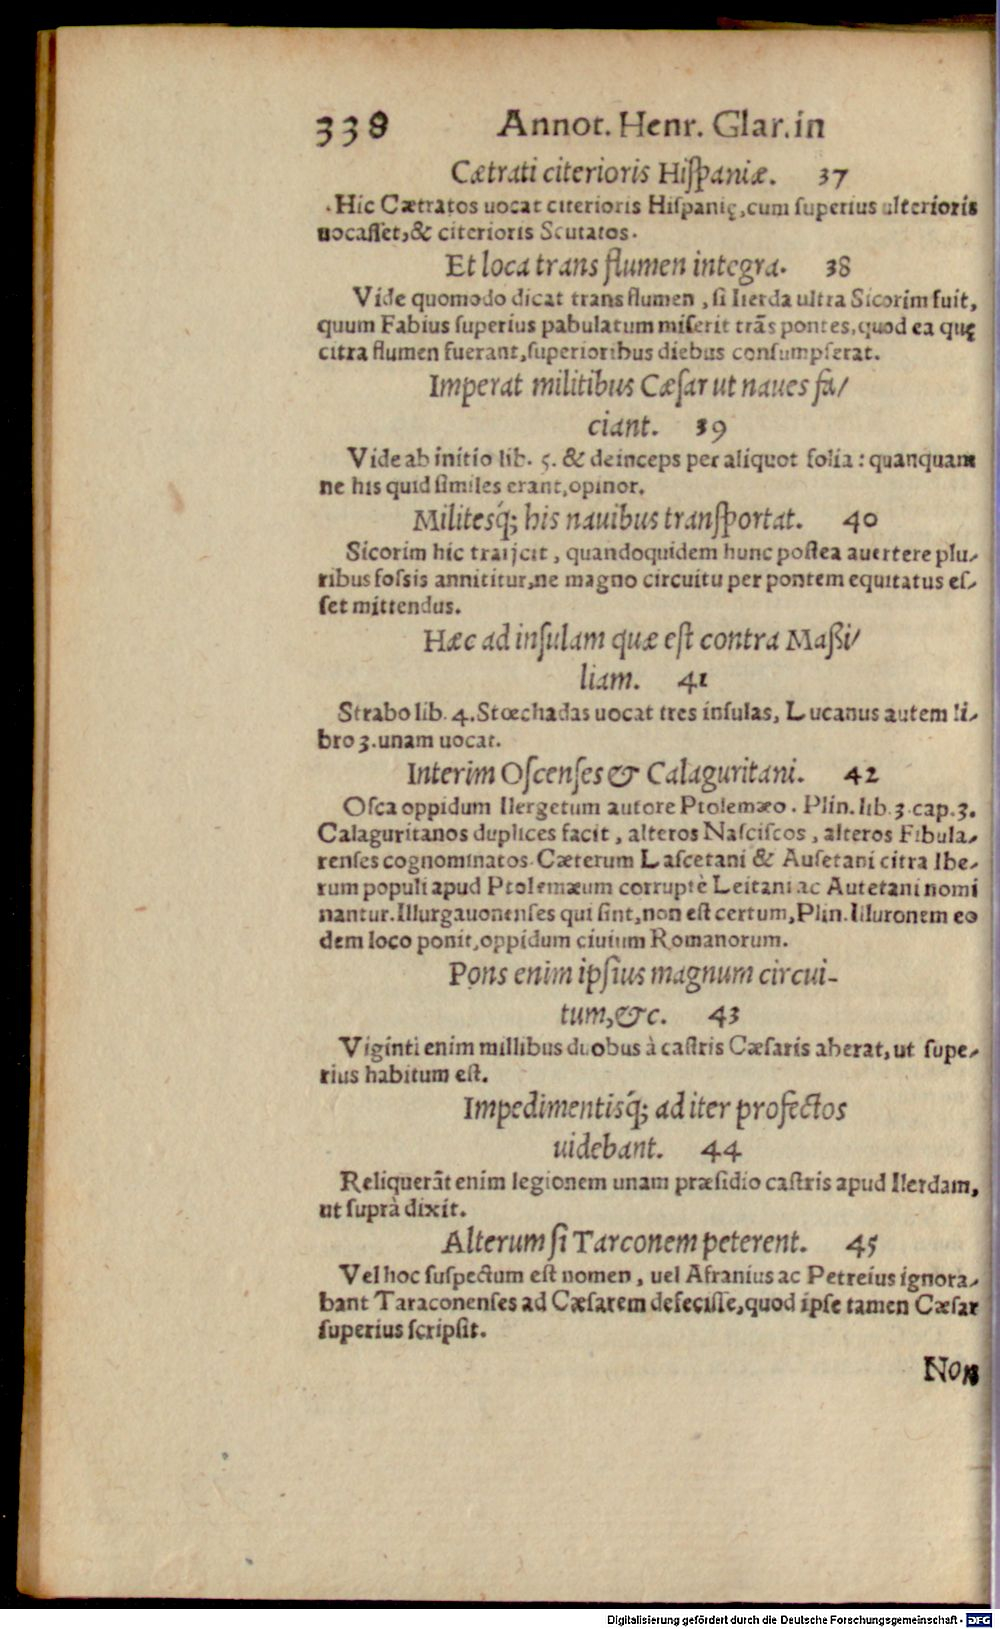 338 Annot. Henr. Glar. in
Cætrati citerioris Hiſpaniæ. 37
Hic Cætratos uocat citerioris Hiſpanię, cum ſuperius ulterioris
uocaſſet, & citerioris Scutatos.
Et loca trans flumen integra. 38
Vide quomodo dicat trans flumen, ſi Ilerda ultra Sicorim fuit,
quum Fabius ſuperius pabulatum miſerit trãs pontes, quod ea quę
citra flumen fuerant, ſuperioribus diebus conſumpſerat.
Imperat militibus Cæſar ut naues fa/
ciant. 39
Vide ab initio lib. 5. & deinceps per aliquot folia: quanquam
ne his quid ſimiles erant, opinor.
Militesq́; his nauibus tranſportat. 40
Sicorim hic traijcit, quandoquidem hunc poſtea auertere plu-
ribus foſsis annititur, ne magno circuitu per pontem equitatus eſ-
ſet mittendus.
Hæc ad inſulam quæ eſt contra Maßi/
liam. 41
Strabo lib. 4. Stœchadas uocat tres inſulas, Lucanus autem li-
bro 3. unam uocat.
Interim Oſcenſes & Calaguritani. 42
Oſca oppidum Ilergetum autore Ptolemæo. Plin. lib. 3. cap. 3.
Calaguritanos duplices facit, alteros Naſciſcos, alteros Fibula-
renſes cognominatos. Cæterum Laſcetani & Auſetani citra Ibe-
rum populi apud Ptolemæum corruptè Leitani ac Autetani nomi
nantur. Illurgauonenſes qui ſint, non eſt certum, Plin. Iluronem eo
dem loco ponit, oppidum ciuium Romanorum.
Pons enim ipſius magnum circui-
tum, &c. 43
Viginti enim millibus duobus à caſtris Cæſaris aberat, ut ſupe-
rius habitum eſt.
Impedimentisq́; ad iter profectos
uidebant. 44
Reliquerãt enim legionem unam præſidio caſtris apud Ilerdam,
ut ſuprà dixit.
Alterum ſi Tarconem peterent. 45
Vel hoc ſuſpectum eſt nomen, uel Afranius ac Petreius ignora-
bant Taraconenſes ad Cæſarem defeciſſe, quod ipſe tamen Cæſar
ſuperius ſcripſit.
Non
Digitalisierung gefördert durch die Deutsche Forschungsgemeinschaft - DFG